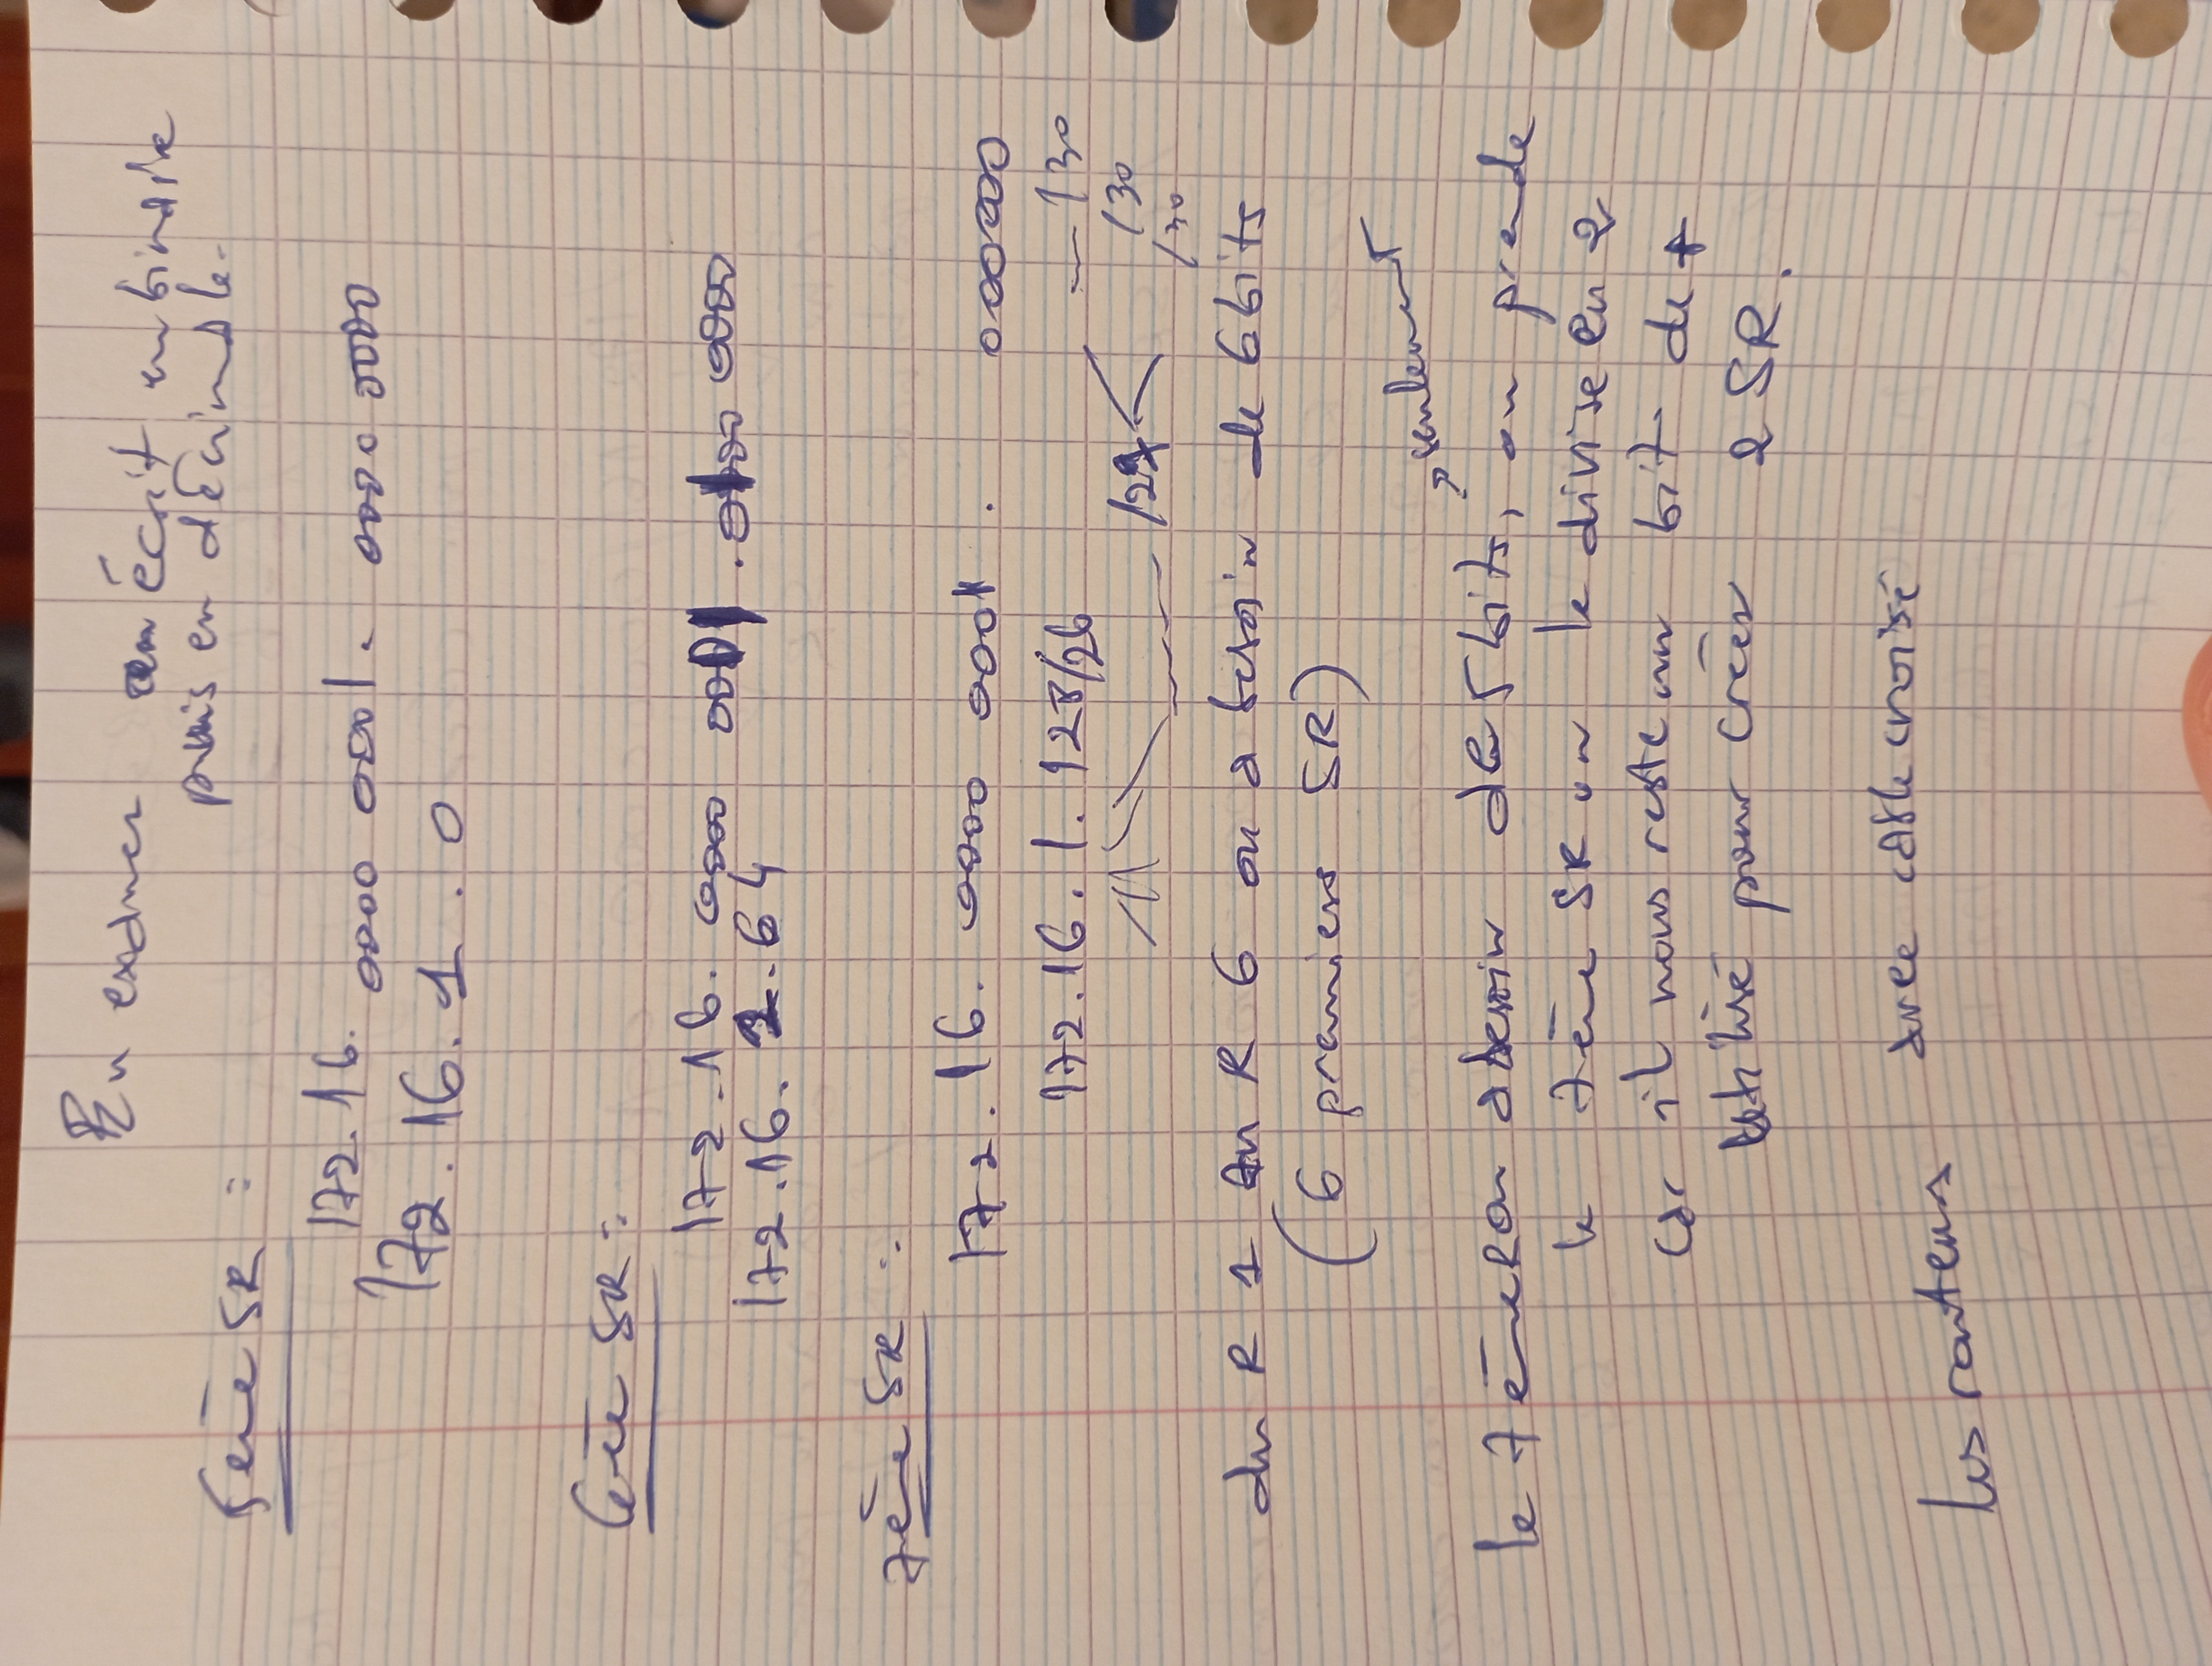 En examen on écrit en binaire
puis en décimale.
5ème SR :
172.16. 0000 0001. 0000 0000
172.16.1.0
6ème SR :
172.16. 0000 0001.0100 0000
172.16.2.64
7ème SR :
172.16. 0000 0001. 000000
172.16.1.128/26
/30
/27 /30
/30
du R 1 au R 6 on a besoin de 6 bits
(6 premiers SR)
seulement
le 7ème R on a besoin de 5 bits, on prend le
le 7ème SR on le divise en 2
car il nous reste un bit de +
utilisé pour créer 2 SR.
avec cable croisé
les routeurs